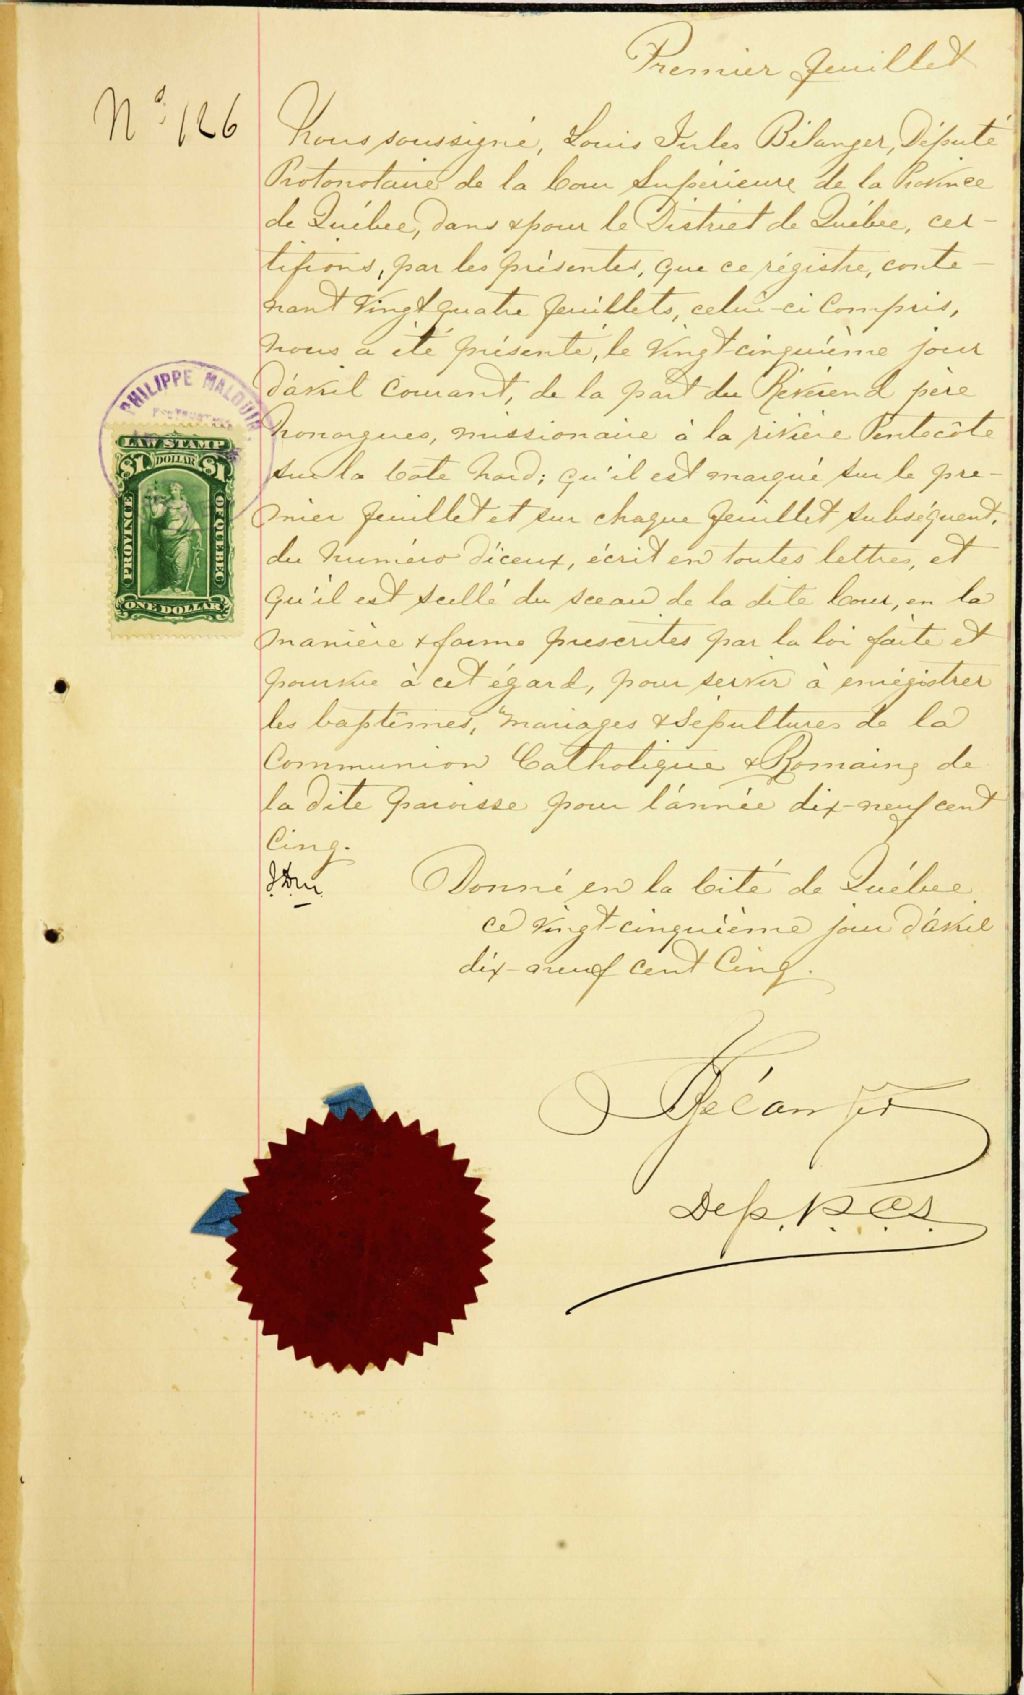 Premier feuillet
No. 126
Nous soussigné, Louis Jules Bélanger, Député
Protonotaire de la Cour Supérieure de la Province
de Québec, dans & pour le District de Québec, cer-
tifions, par les présentes, que ce régistre, conte-
nant vingt quatre feuillets, celui-ci compris,
nous a été présenté, le vingt-cinquième jour
d'avril courant, de la part du Révérend père
missionaire à la rivière Pentecôte
sur la Côte Nord; qu'il est marqué sur le pre-
mier feuillet et sur chaque feuillet subséquent,
du numéro d'iceux, écrit en toutes lettres, et
qu'il est scellé du sceau de la dite Cour, en la
manière & forme prescrites par la loi faite et
pourvue à cet égard, pour servir à enrégistrer
les baptêmes, mariages & Sépultures de la
Communion Catholique & Romaine de
la dite paroisse pour l'année dix-neuf cent
Cinq.
Donné en la Cité de Québec
ce vingt-cinquième jour d'avril
dix-neuf cent Cinq.
Bélanger
Dep. P. C. S.
PHILIPPE MALOUIN
LAW STAMP
$1 DOLLAR $1
PROVINCE OF QUEBEC
ONE DOLLAR